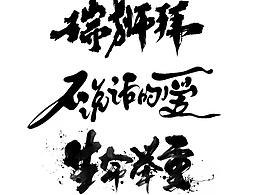 瑞狮拜
不说话的爱
生命举重